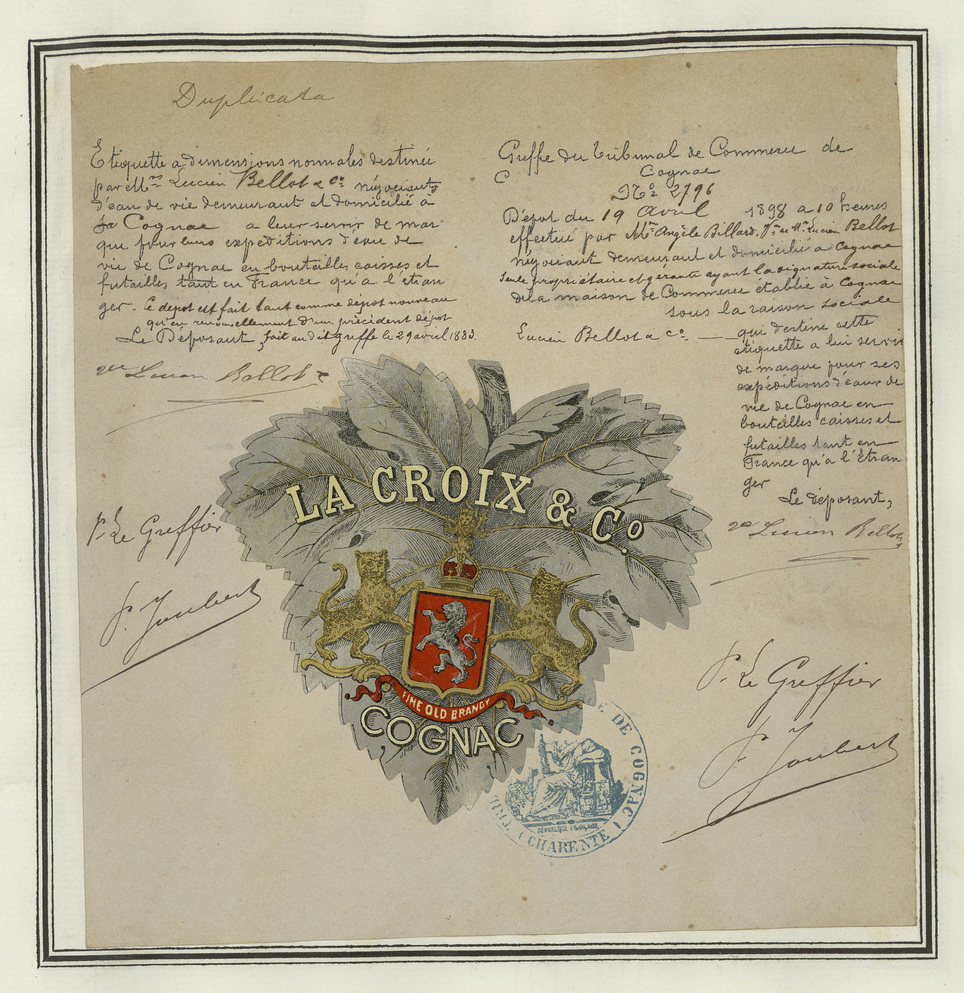 Duplicata
Etiquette a dimensions normales destinée
par Mrs Lucien Bellot & Co négociants
d'eau de vie demeurant et domicilié à
Cognac a leur servir de mar
que pour leurs expéditions d'eau de
vie de Cognac en bouteilles caisses et
futailles tant en France qu'à l'étran
ger. Ce dépot est fait tant comme dépot nouveau
qu'en renouvellement d'un précédent dépot
Le Déposant, fait au dit greffe le 29 avril 1883.
Vve Lucien Bellot
Pr Le Greffier
P. Joubert
Greffe du Tribunal de Commerce de
Cognac
No 2796
Dépot du 19 Avril 1898 a 10 heures
effectué par Mme Angèle Billard, Vve de Mr Lucien Bellot
négociant demeurant et domicilié a Cognac
seule propriétaire et gérante ayant la signature sociale
de la maison de Commerce établie à Cognac
sous la raison sociale
Lucien Bellot & Co. — qui destine cette
étiquette a lui servir
de marque pour ses
expéditions d'eaux de
vie de Cognac en
bouteilles caisses et
futailles tant en
France qu'à l'étran
ger
Le déposant,
Vve Lucien Bellot
LA CROIX & Co.
FINE OLD BRANDY
COGNAC
P. Le Greffier
P. Joubert
DE COGNAC
(CHARENTE)